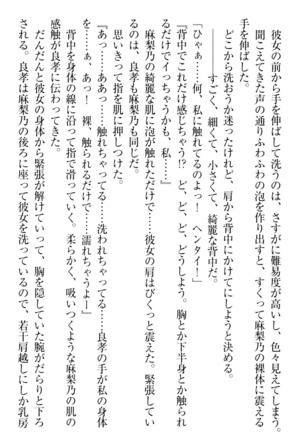 彼女の前から手を伸ばして洗うのは、さすがに難易度が高いし、色々見えてしまう。
聞こえてきた声の通りふわふわの泡を作り出すと、すくって麻梨乃の裸体に震える
手を伸ばした。
――すごく、細くて、小さくて、綺麗な背中だ。
どこから洗おうか迷ったけれど、肩から背中にかけてにしようと決める。
「ひゃぁ……何、私に触れてるのよっ！　ヘンタイ！」
『背中でこれだけ感じちゃう!?　ど、ど、ど、どうしよう。胸とか下半身とか触られ
るだけでイっちゃうかも、私……』
麻梨乃の綺麗な肌に泡が触れただけで……彼女の肩はびくっと震えた。緊張してい
るのは、良孝も麻梨乃も同じだ。
思いきって指を肌に押しつけた。
『あっ……ああっ……触れちゃってる……洗われちゃってる……良孝の手が私の身体
を……ぁ、あっ！　裸、触られるだけで……濡れちゃうよー』
背中を身体の線に沿って指で滑っていく。柔らかく、吸いつくような麻梨乃の肌の
感触が良孝に伝わってきた。
だんだんと彼女の身体から緊張が解けていって、胸を隠していた腕がだらりと下ろ
される。良孝は麻梨乃の後ろに座って彼女を洗っているので、若干肩越しにしか乳房